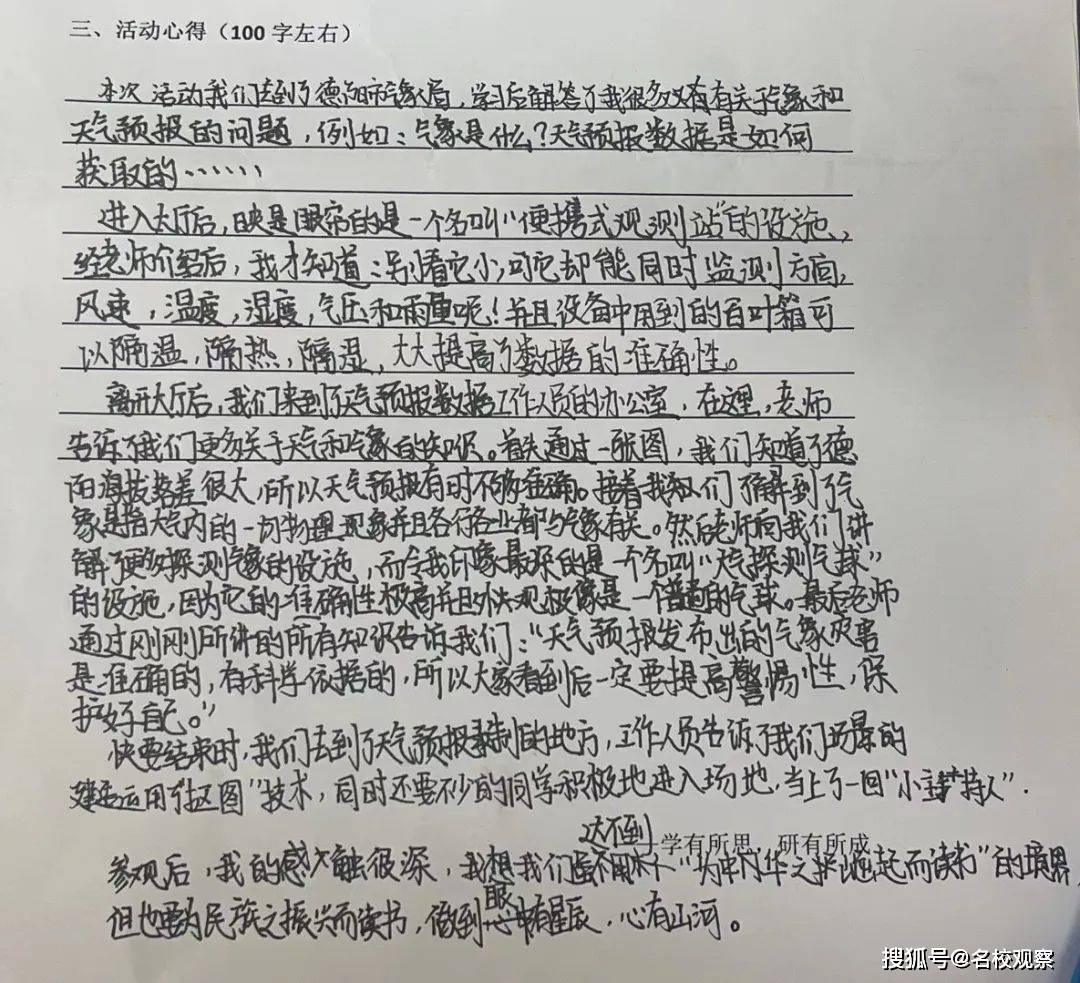 三、活动心得（100字左右）
本次活动我们去到了德阳市气象局，学习后解答了我很多有关于气象和
天气预报的问题，例如：气象是什么？天气预报数据是如何
获取的……
进入大厅后，映是眼帘的是一个名叫“便携式观测站”的设施，
经老师介绍后，我才知道：别看它小，可它却能同时监测方面，
风速，温度，湿度，气压和雨量呢！并且设备中用到的百叶箱可
以隔温，隔热，隔湿，大大提高了数据的准确性。
离开大厅后，我们来到了天气预报数据工作人员的办公室，在这里，老师
告诉了我们更多关于天气和气象的知识。首先通过一张图，我们知道了德
阳海拔差很大，所以天气预报有时不够准确。接着我们了解到了气
象是指大气内的一切物理现象并且各行各业都与气象有关。然后老师向我们讲
解了更多探测气象的设施，而令我印象最深的是一个名叫“大气探测气球”
的设施，因为它的准确性极高并且外观极像是一个普通的气球。最后老师
通过刚刚所讲的所有知识告诉我们：“天气预报发布出的气象灾害
是准确的，有科学依据的，所以大家看到后一定要提高警惕性，保
护好自己。”
快要结束时，我们去到了天气预报录制的地方，工作人员告诉了我们场景的
运用“抠图”技术，同时还要不少的同学积极地进入场地，当上了一回“小主持人”.
达不到
学有所思，研有所成
参观后，我的感触很深，我想我们“为中华之崛起而读书”的境界，
但也要为民族之振兴而读书，做到眼中有星辰，心有山河。
搜狐号@名校观察